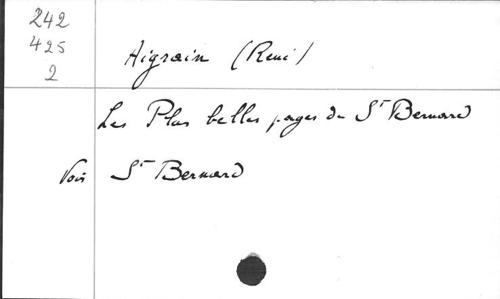 242
425
2
Aigrain (René)
Les Plus belles pages de St Bernard
Voir St Bernard